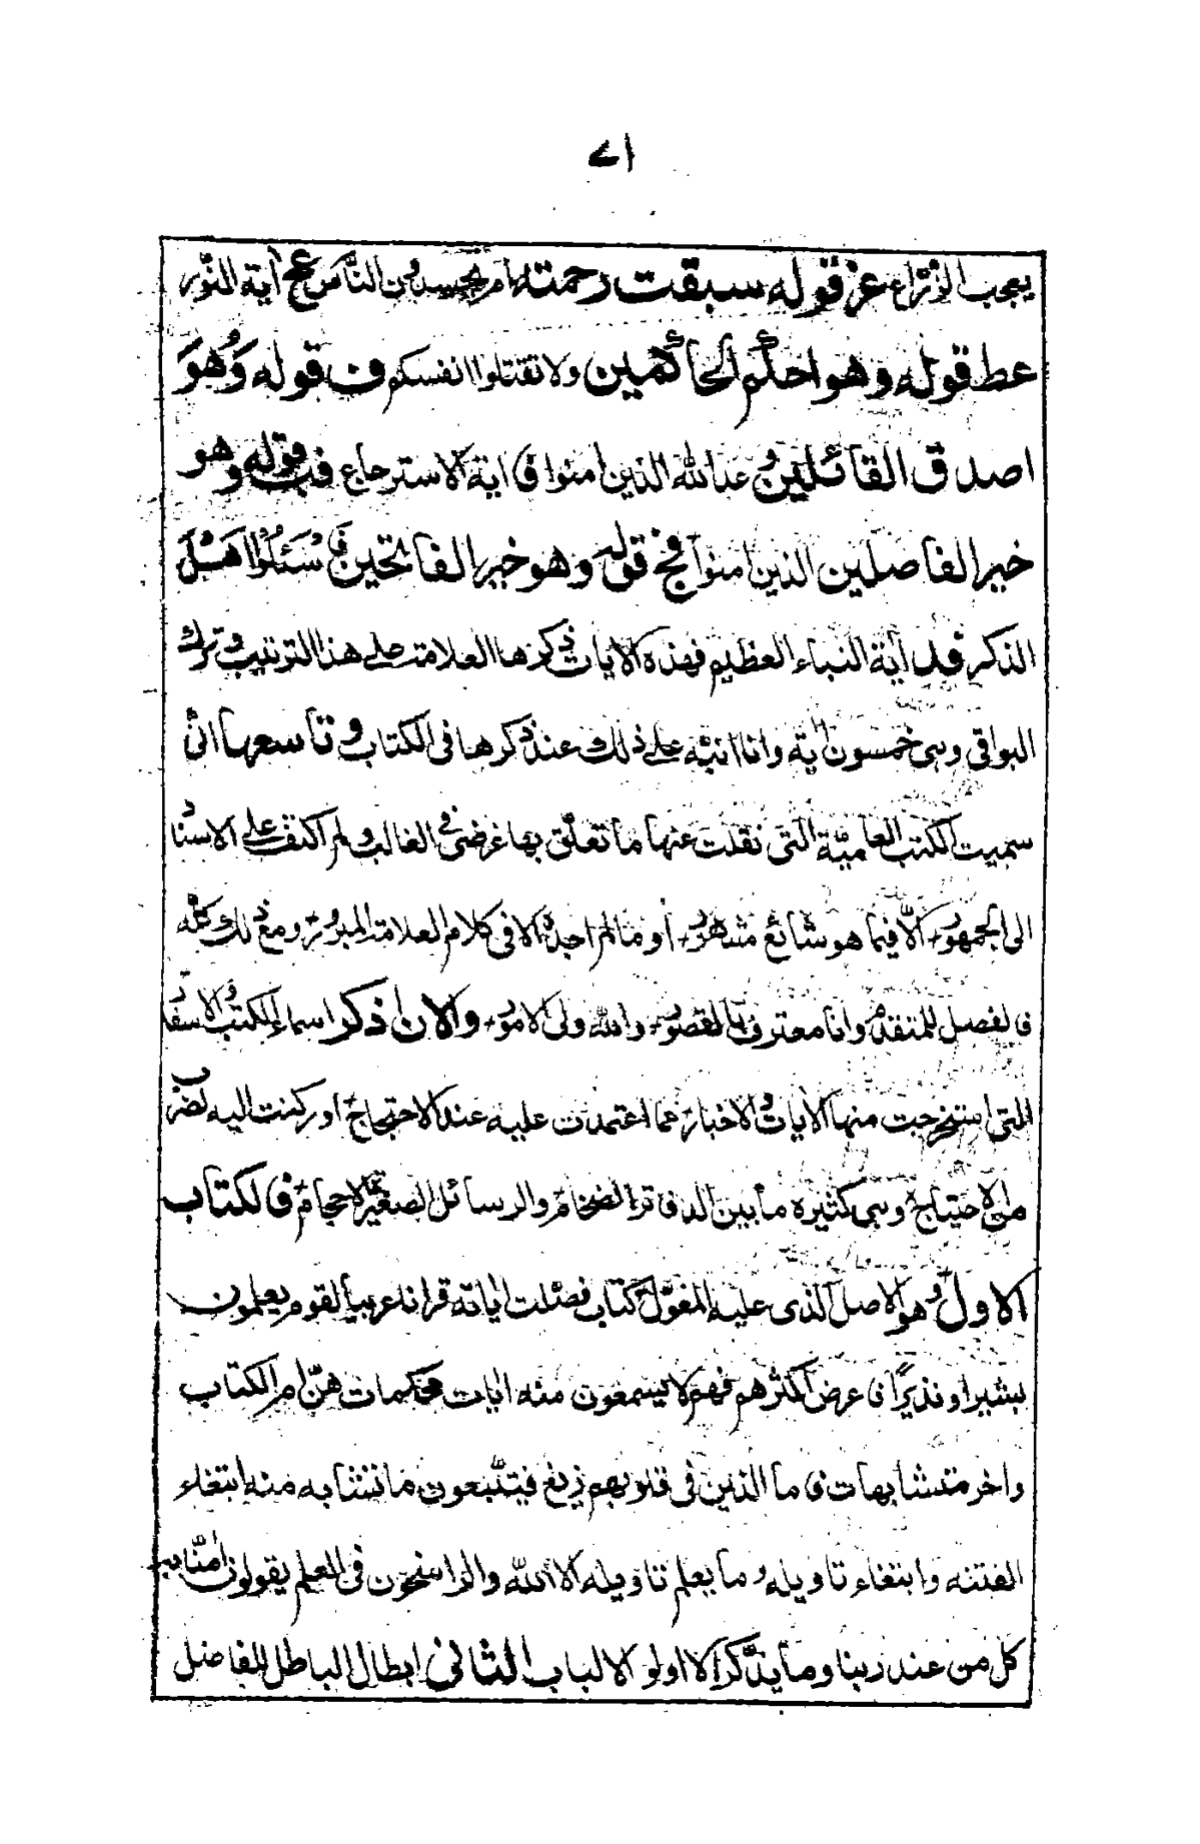 ٧١
يعجب الزراع عز قوله سبقت رحمته ام يحسدون الناس عج آية النور
عط قوله وهو احكم الحاكمين ولا تقتلوا انفسكم ف قوله وهو
اصدق القائلين وعد الله الذين امنوا فا آية الاسترجاع فب قوله وهو
خير الفاصلين الذين امنوا فج قوله وهو خير الفاتحين فاسئلوا اهل
الذكر فد آية النباء العظيم فهذه الايات ذكرها العلامة على هذا الترتيب وترك
البواقى وهى خمسون آية وانا انبّه على ذلك عند ذكرها فى الكتاب وتاسعها انّى
سميت الكتب العاميّة التى نقلت عنها ما تعلّق بها غرضى فى الغالب ولم اكتف على الاسناد
الى الجمهور الّا فيما هو شائع مشهور او ما لم اجده الا فى كلام العلامة المبرور ومع ذلك كلّه
فالفضل للمتقدم وانا معترف بالقصور والله ولى الامور والان اذكر اسماء الكتب والاسفار
التى استخرجت منها الايات والاخبار مما اعتمدت عليه عند الاحتجاج او ركنت اليه لضرب
من الاحتياج وهى كثيرة ما بين الدفاتر الضخام والرسائل الصغيرة الاحجام فالكتاب
الاول وهو الاصل الذى عليه المعوّل كتاب فصّلت اياته قرانا عربيا لقوم يعلمون
بشيرا ونذيرًا فاعرض اكثرهم فهم لا يسمعون منه ايات محكمات هنّ ام الكتاب
واخر متشابهات فاما الذين فى قلوبهم زيغ فيتّبعون ما تشابه منه ابتغاء
الفتنه وابتغاء تاويله وما يعلم تاويله الا الله والراسخون فى العلم يقولون امنّا به
كل من عند ربنا وما يذّكر الا اولو الالباب الثانى ابطال الباطل للفاضل